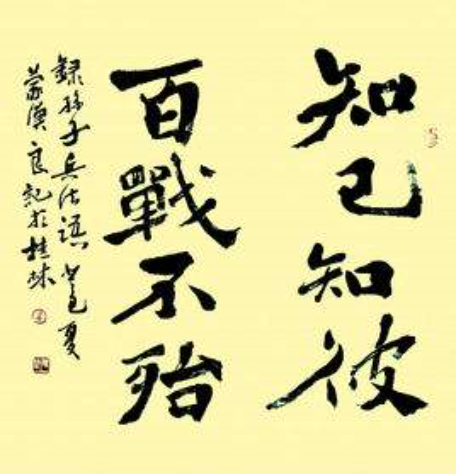 知己知彼
百戰不殆
録孫子兵法語 夏
蒙漢良記於桂林